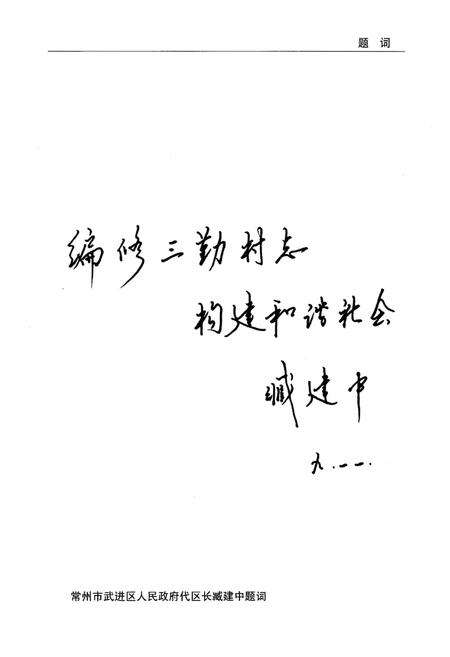 题 词
编修三勤村志
构建和谐社会
臧建中
九.一一.
常州市武进区人民政府代区长臧建中题词